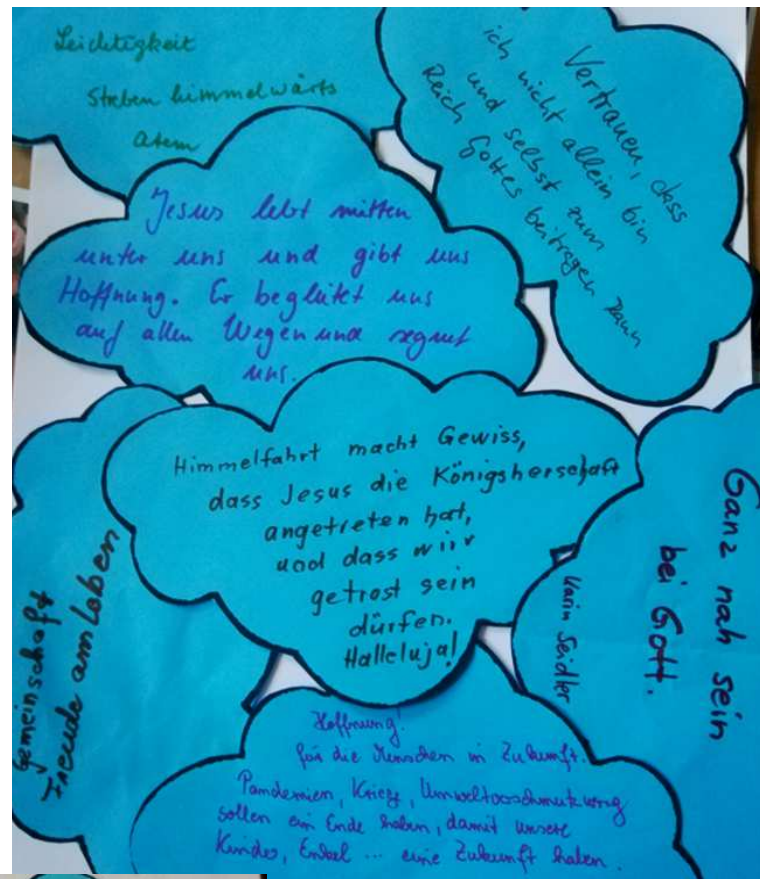 Leichtigkeit
Streben himmelwärts
Atem
Vertrauen, dass
ich nicht allein bin
und selbst zum
Reich Gottes beitragen kann
Jesus lebt mitten
unter uns und gibt uns
Hoffnung. Er begleitet uns
auf allen Wegen und segnet
uns.
Himmelfahrt macht Gewiss,
dass Jesus die Königsherschaft
angetreten hat,
und dass wir
getrost sein
dürfen.
Halleluja!
Gemeinschaft
Freude am Loben
Ganz nah sein
bei Gott.
Karin Seidler
Hoffnung!
für die Menschen in Zukunft.
Pandemien, Kriege, Umweltverschmutzung
sollen ein Ende haben, damit unsere
Kinder, Enkel ... eine Zukunft haben.